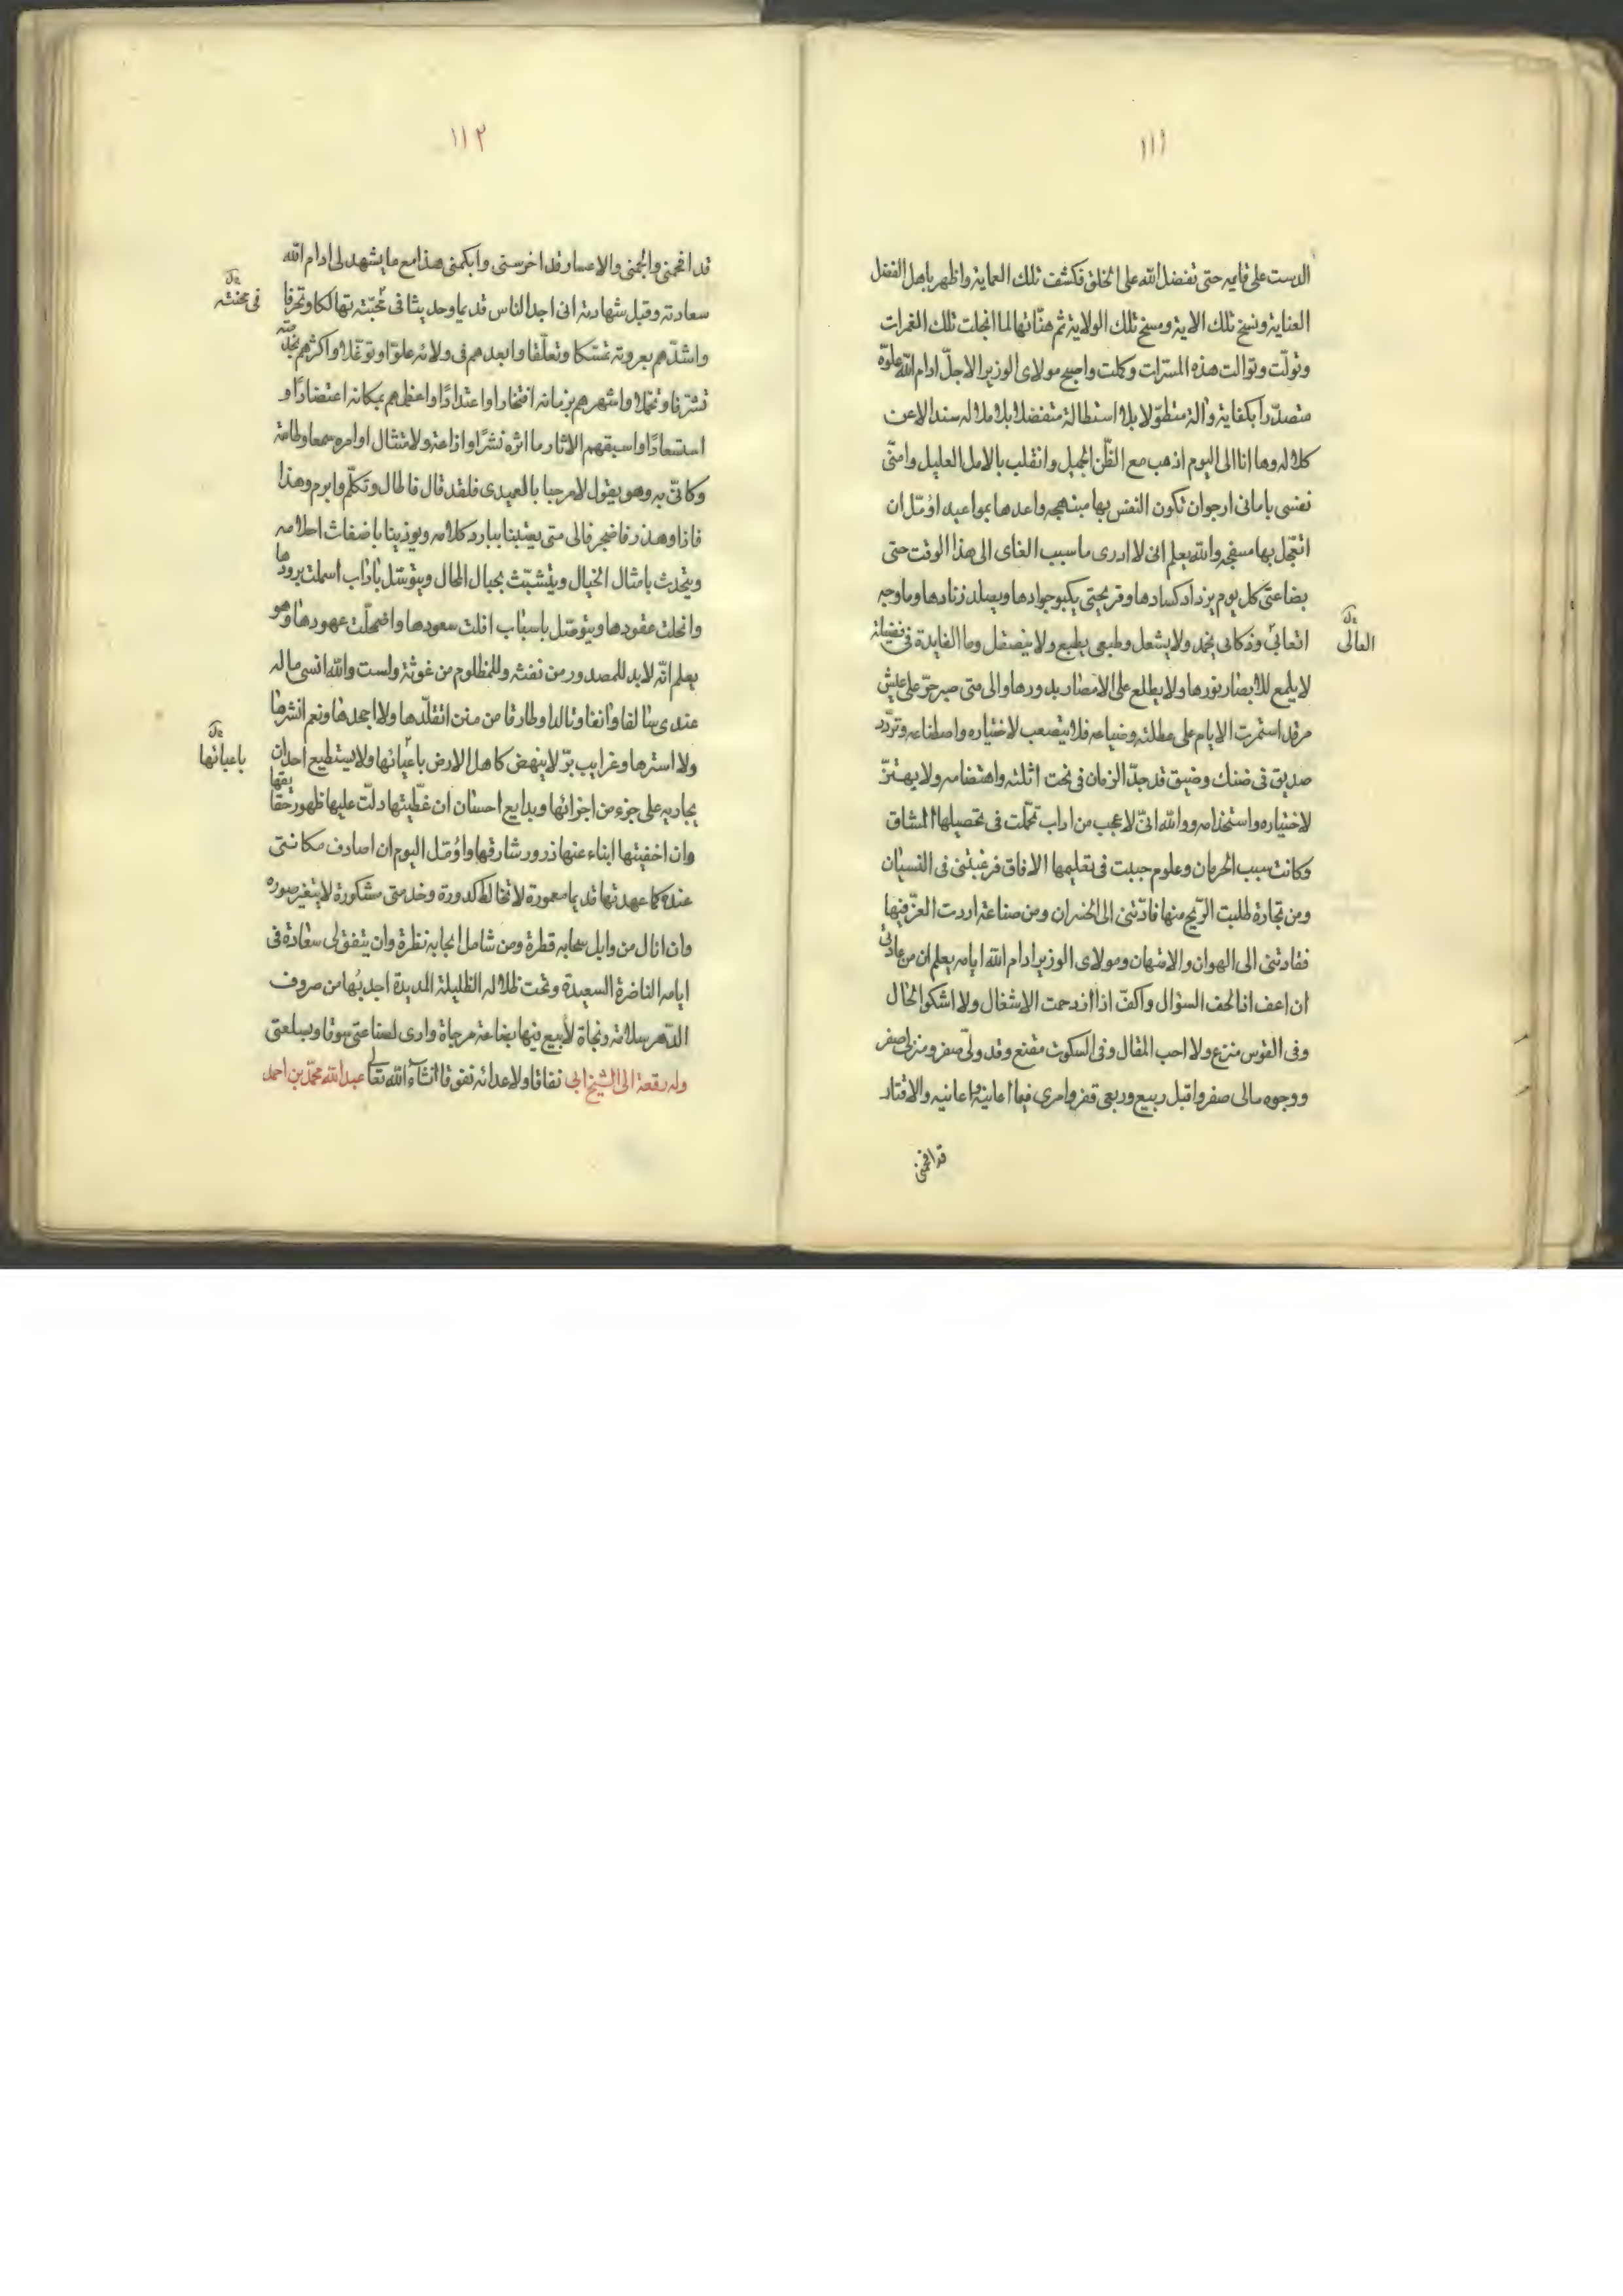 ١١١
الدست على قايمه حتى تفضل الله على الخلق فكشف تلك العماية واظهر باهل الفضل
العناية ونسخ تلك الاية ومسخ تلك الولاية ثم هنّاتها لما انجلت تلك الغمرات
وتولّت وتوالت هذه المسرّات وكملت واصبح مولاى الوزير الاجلّ ادام الله علوّه
متصدّرا بكفاية والة متطوّلا بلا استطالة متفضلا بلا ملالة سندا لا عن
كلالة وها انا الى اليوم اذهب مع الظّن الجميل وانقلب بالامل العليل وامنّى
نفسى بامانى ارجوان تكون النفس بها مبتهجه واعدها بمواعيد اؤمّل ان
اتعجّل بها مسفجه والله يعلم انى لا ادرى ما سبب الغاى الى هذا الوقت حتى
بضاعتى كل يوم يزداد كسادها وقريحتى يكبو جوادها ويصلد زنادها وما وجه
اتعابى وذكائى يخمد ولا يشعل وطبعى يطبع ولا يصقل وما الفايدة فى فضيلة
العالى
لا يلمع للابصار نورها ولا يطلع على الامصار بدورها والى متى صبر حرّ على عيش
مرقد استمرت الايام على مطلته وضياعه فلا يتصعب لاختياره واصطناعه وتردّد
صديق فى ضنك وضيق قد جدّ الزمان فى نحت اثلته واهتضامه ولا يهتزّ
لاختياره واستخدامه ووالله انىّ لاعجب من اداب تحمّلت فى تحصيلها المشاق
وكانت سبب الحرمان وعلوم جبت فى تعليمها الافاق فرغبتنى فى النسيان
ومن تجارة طلبت الرّبح منها فادّتنى الى الخسران ومن صناعة اردت العزّ فيها
فقادتنى الى الهوان والامتهان ومولاى الوزير ادام الله ايامه يعلم ان من عادتى
ان اعف اذا لحف السؤال واكفّ اذا ازدحمت الاشغال ولا اشكو الحال
وفى القوس منزع ولا احب المقال وفى السكوت مقنع وقد ولّى صفر ومنزلى صفر
ووجوه مالى صفر واقبل ربيع وربعى قفر وامرى فيما اعانيه واعانيه والاقتار
قد افحمنى
١١٢
قد افحمنى والجمنى والاعسار قد اخرسنى وابكمنى هذا مع ما يشهد لى ادام الله
سعادته وقبل شهادته انى اجد الناس قديما وحديثا فى محبّته تهالكا وتحرقا
فى محنته
واشدّهم بعروته تمسّكا وتعلّقا وابعدهم فى ولائه علوّا وتوغّلا واكثرهم بخدمته
تشرّفا وتجمّلا واشهرهم بزمانه افتخارا واعتدادًا واعظمهم بمكانه اعتضادًا و
استسعادًا واسبقهم الاثار ماثره نشرًا واذاعة ولامتثال اوامره سمعا وطاعة
وكانىّ به وهو يقول لا مرحبا بالعميدى فلقد قال فاطال وتكلّم وابرم وهذا
فاذا وهذر فاضجر فالى متى يعتبنا ببارد كلامه ويوذينا باضغاث احلامه
ويتحدث بامثال الخيال ويتشبّث بحبال المحال ويتوسّل باداب اسملت برودها
وانحلت عقودها ويتوصّل باسباب افلت سعودها واضمحلّت عهودها وهو
يعلم انّه لابد للمصدور من نفثه وللمظلوم من غوثة ولست والله انسى ماله
عندى سالفا وانفا وتالدا وطارفا من منن اتقلّدها ولا اجحدها ونعم انشرها
ولا استرها وغرايب برّ لا ينهض كاهل الارض باعبائها ولا يستطيع احد ان
باعبائها
يجاريه على جزء من اجزائها وبدايع احسان ان غطّيتها دلّت عليها ظهور حقايقها
وان اخفيتها ابناء عنها ذرور شارقها واؤمّل اليوم ان اصادف مكانتى
عنده كما عهدتها قديما معمورة لا تخالط كدورة وخدمتى مشكورة لا يتغير صوره
وان انال من وابل سحابه قطرة ومن شامل ايجابه نظرة وان يتفق لى سعادة فى
ايامه الناضرة السعيدة وتحت ظلاله الظليلة المديدة اجد بها من صروف
الدّهر سلامة ونجاة لابيع فيها بضاعة مزجاة وارى لصناعتى سوقا وبسلعتى
نفاقا ولاعدائه نفوقا انشآء الله تعالى وله رقعة الى الشيخ ابى عبدالله محمّد بن احمد